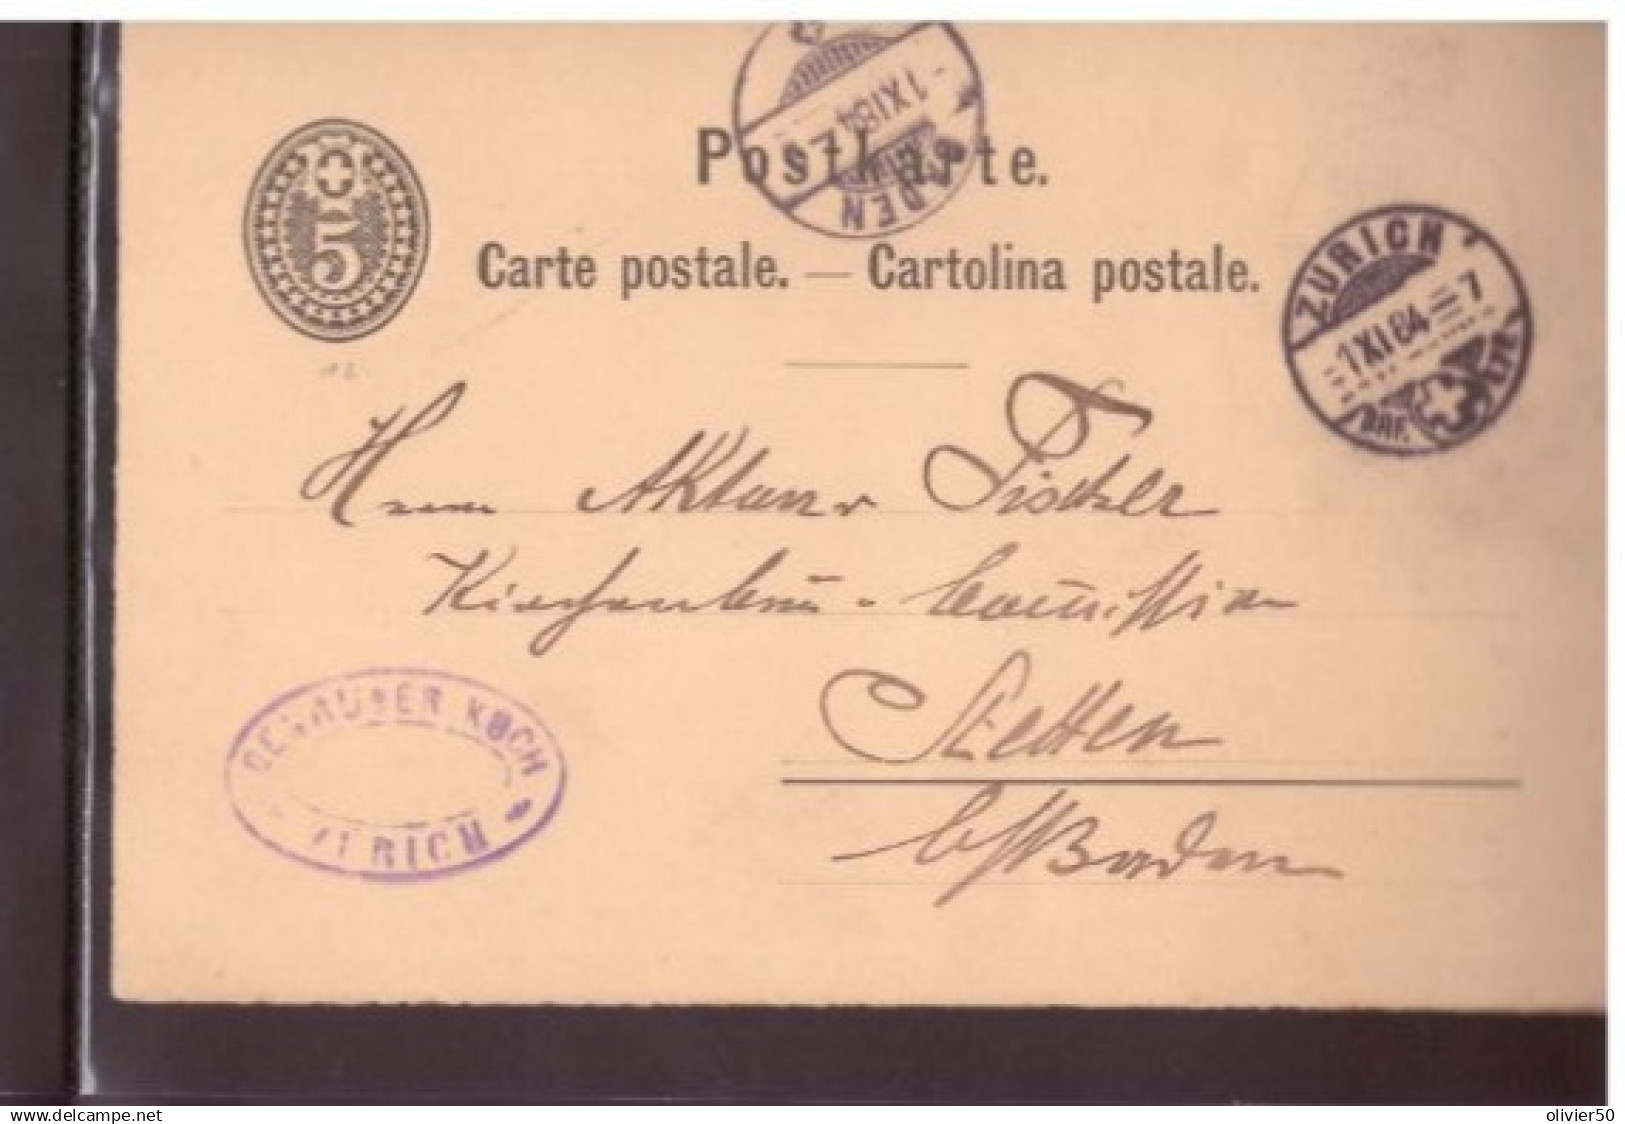 5
Postkarte.
Carte postale. — Cartolina postale.
BADEN
1 XI 84
ZÜRICH
1 XI 84 — 7
BRF.
12
Herrn Aktuar Fischer
Kirchenbau - Commission
Stetten
b/Baden
GEBRÜDER KOCH
ZÜRICH
www.delcampe.net
olivier50